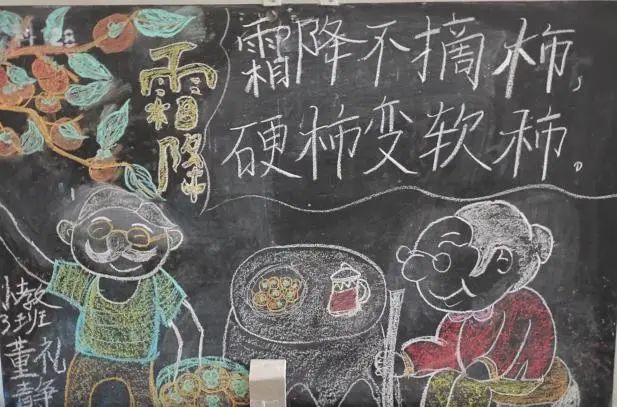 霜降
霜降不摘柿,
硬柿变软柿。
教
班
董礼
静